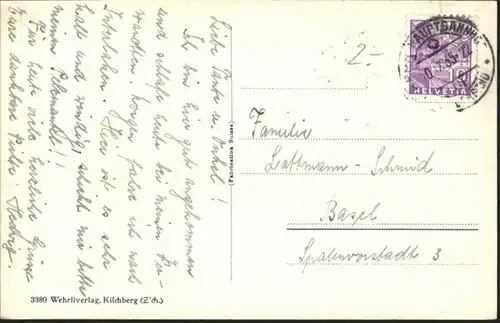 Liebe Tante u. Onkel!
Ich bin hier gut angekommen
und schlafe heute bei meinen Ver-
wandten. Morgen fahre ich nach
Interlaken. Hier ist es sehr
kalt und windig, schickt mir bitte
meinen Pelzmantel!!
Für heute viele herzliche Grüsse
Eure dankbare Nichte Hedwig.
(Fabrication Suisse)
3380 Wehrliverlag, Kilchberg (Z'ch.)
2-
HELVETIA
Familie
Lattmann-Schmid
Basel
Spalenvorstadt 3